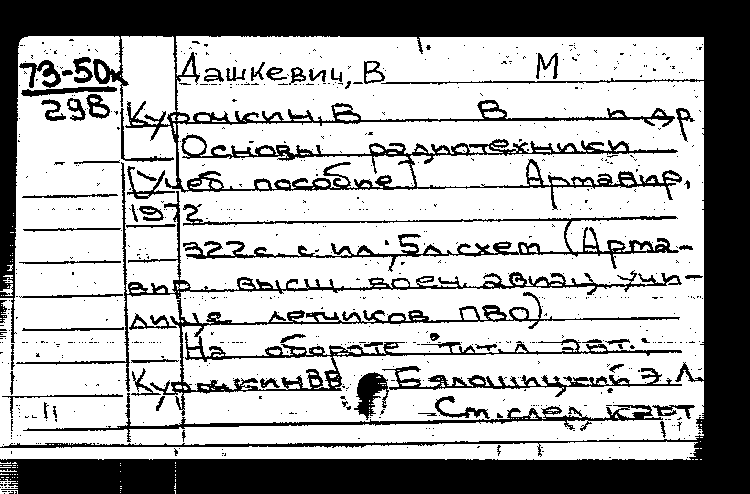 73-50к Дашкевич, В М
29В Курочкин, В В и др
Основы радиотехники
[Учеб. пособие]. Армавир,
1972
322 с. с ил; 5 л. схем (Арма-
вир. высш. воен. авиац. учи-
лище летчиков ПВО)
На обороте тит. л авт.:
Курочкин ВВ Бялошицкий Э. Л.
См. след карт